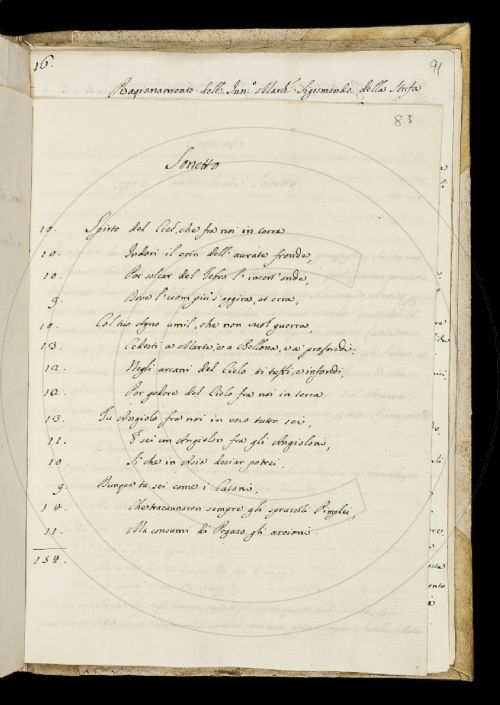 16.
91
Ragionamento dell' Ill.º March.e Sigismondo della Stufa
83
Sonetto
10. Spirto del Ciel, che fra noi in terra
10. Indori il crin dell' aurate fronde,
10. Por solcar del Tebro l' onde,
9. Bene l' uom più s' aggira, et erra,
10. Col tuo Agno umil, che non vuol guerra,
13. Cedesti a Marte, e a Bellona, e a profonde:
12. Negli arcani del Cielo ti tuffi, e infondi,
12. Per godere del Cielo fra noi in terra
13. Tu Angiolo fra noi in vero tutto sei,
11. E sei un Angiolon fra gli Angioloni,
10. Si che in Asia desiar potrei.
9. Dunque tu sei come i Catoni,
14. Che tracannaron sempre gli spruzoli Pimplei,
11. Ma consumi di Pegaso gli arcioni.
154.